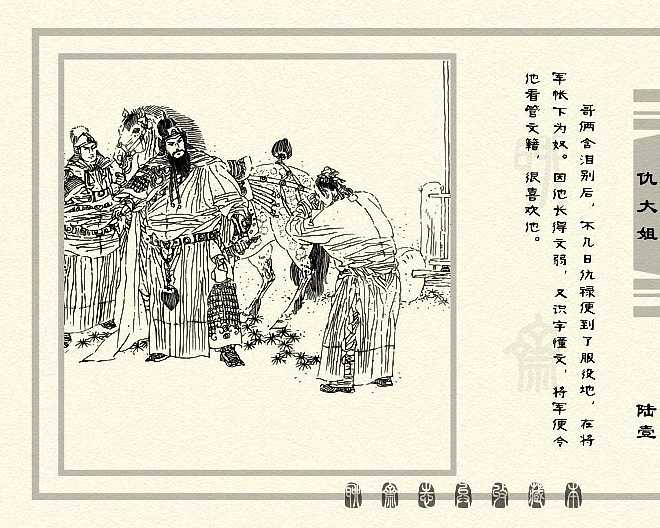 哥俩含泪别后，不几日仇禄便到了服役地，在将
军帐下为奴。因他长得文弱，又识字懂文，将军便令
他看管文籍，很喜欢他。
仇大姐
陆壹
聊斋志异收藏本